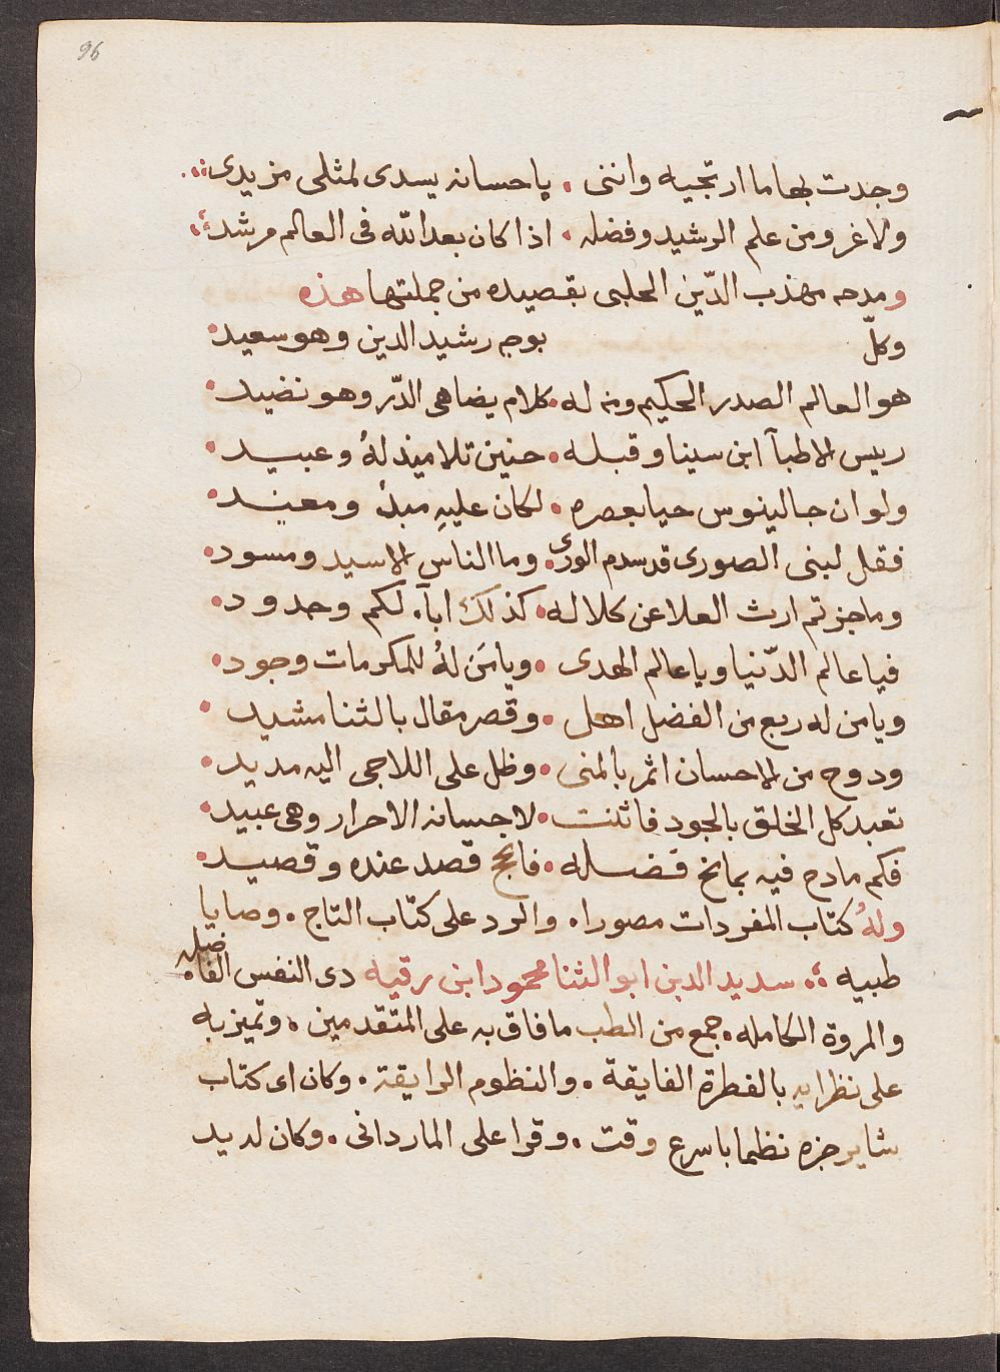 96
وجدت بها ما ارتجيه وانني . باحسانه يسدى لمثلى من يدى
ولاغرو من علم الرشيد وفضله . اذا كان بعد الله فى العالم مرشد
ومدحه مهذب الدّين الحلبى بقصيده من جملتها هذه
وكلّ بوجه رشيد الدين وهو سعيد
هو العالم الصدر الحكيم ومن له . كلام يضاهى الدّر وهو نضيد
رييس الاطبآ ابن سينا وقبله . حنين تلاميذ لهُ وعبيد
ولو ان جالينوس حيا بعصره . لكان عليهِ مبدُ ومعيد
فقل لبنى الصورى قد سدم الورى . وما الناس الا سيد ومسود
وما جزتم ارث العلا عن كلاله . كذلك ابآء لكم وحدود
فيا عالم الدّنيا ويا عالم الهدى . ويا مَن لهُ للمكرمات وجود
ويا من له ربع من الفضل اهل . وقصر مقال بالثنا مشيد
ودوح من الاحسان اثمر بالمنى . وظل على اللاجى اليه مديد
تعبد كل الخلق بالجود فاثنت . لاحسانه الاحرار وهى عبيد
فكم مادح فيه بمانح فضله . فانجح قصد عنده وقصيد
ولهُ كتاب المفردات مصورا . والرد على كتاب التاج . وصايا
طبيه . سديد الدين ابو الثنا محمود ابن رقيه دى النفس الفاضله
والمروة الكامله . جمع من الطب ما فاق به على المتقدمين . وتميز به
على نظرايه بالفطرة الفايقة . والنظوم الرايقة . وكان اى كتاب
شا يرجزه نظما باسرع وقت . وقرا على الماردانى . وكان له يد